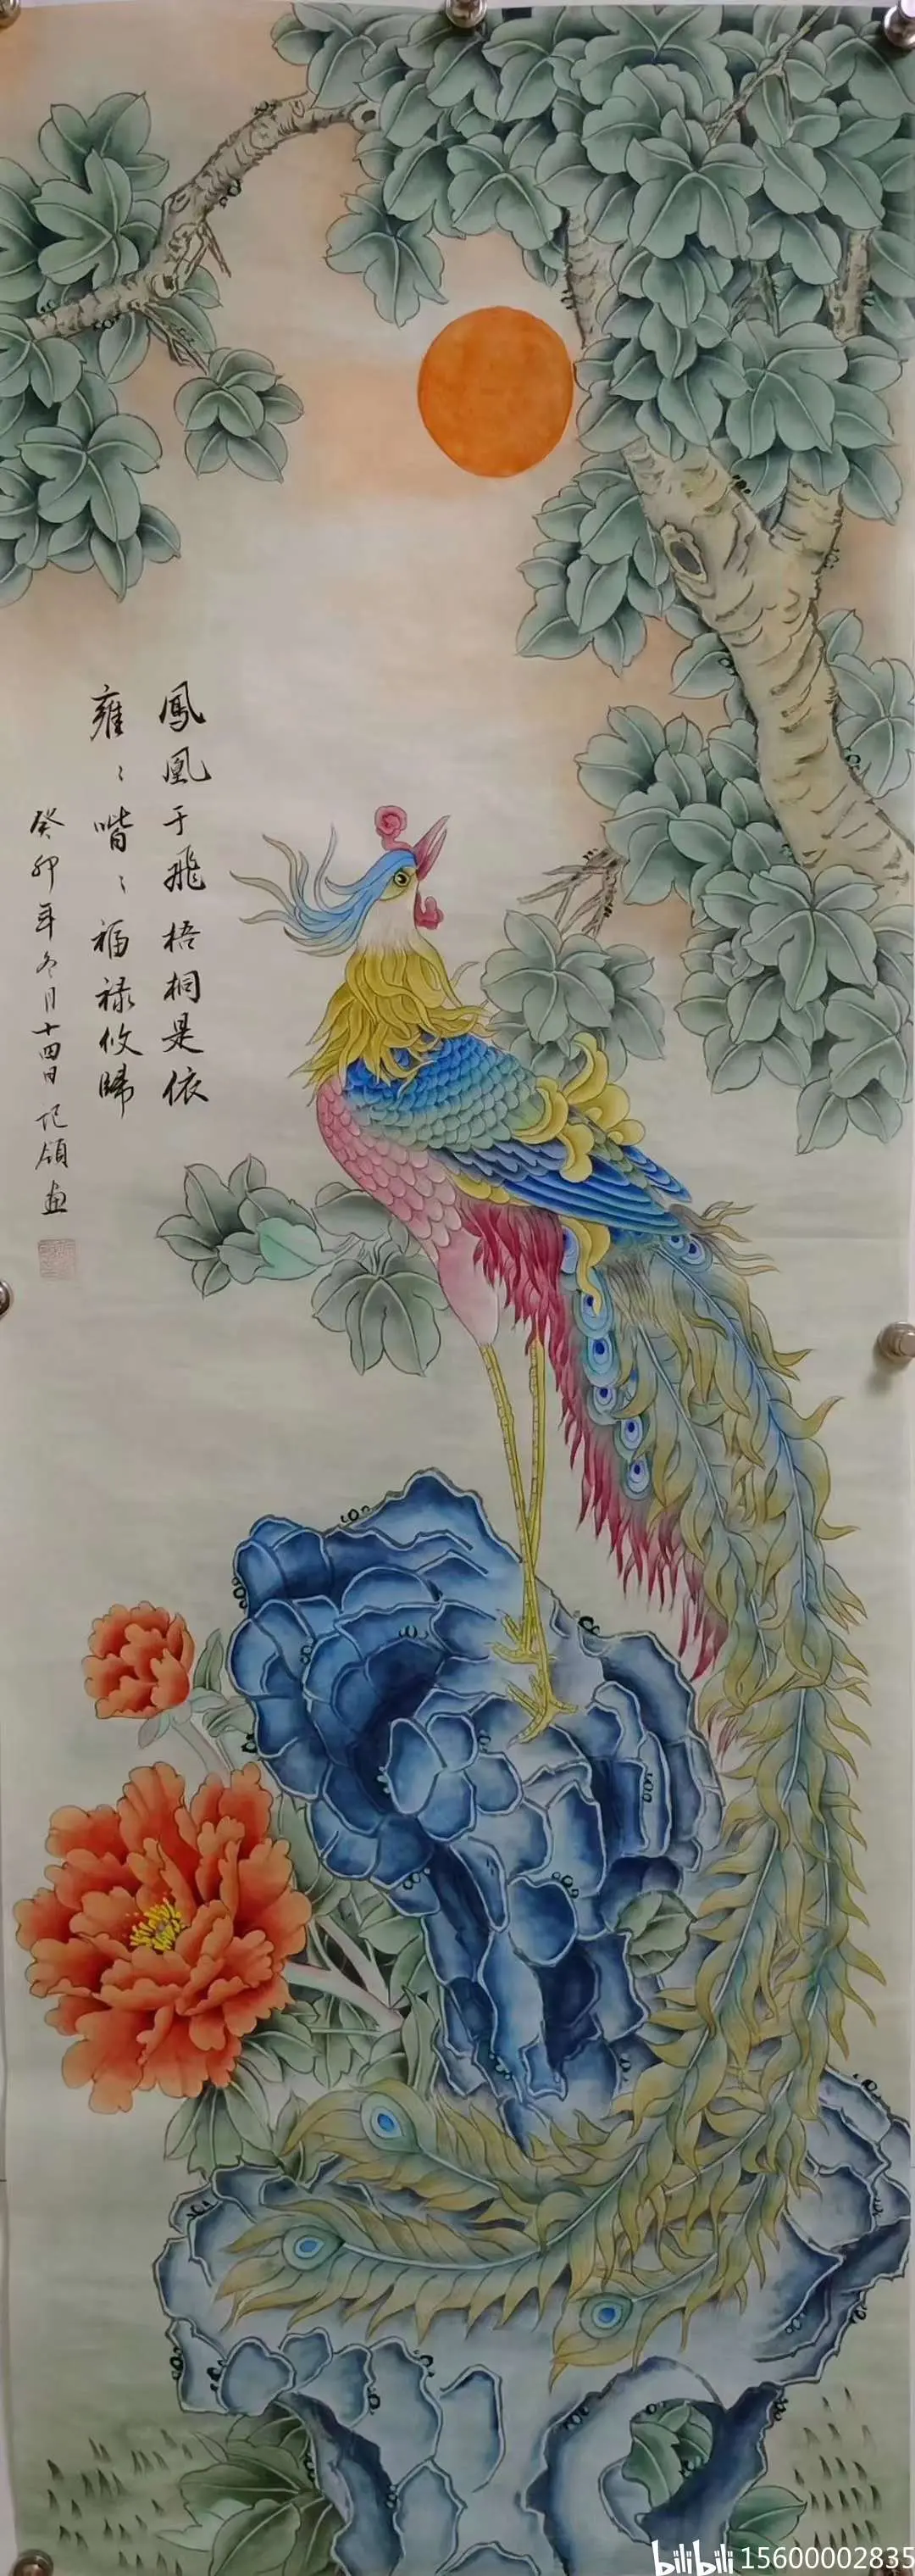 鳳凰于飛梧桐是依
雍〻喈〻福祿攸歸
癸卯年冬月十四日 記領画
bilibili 15600002835